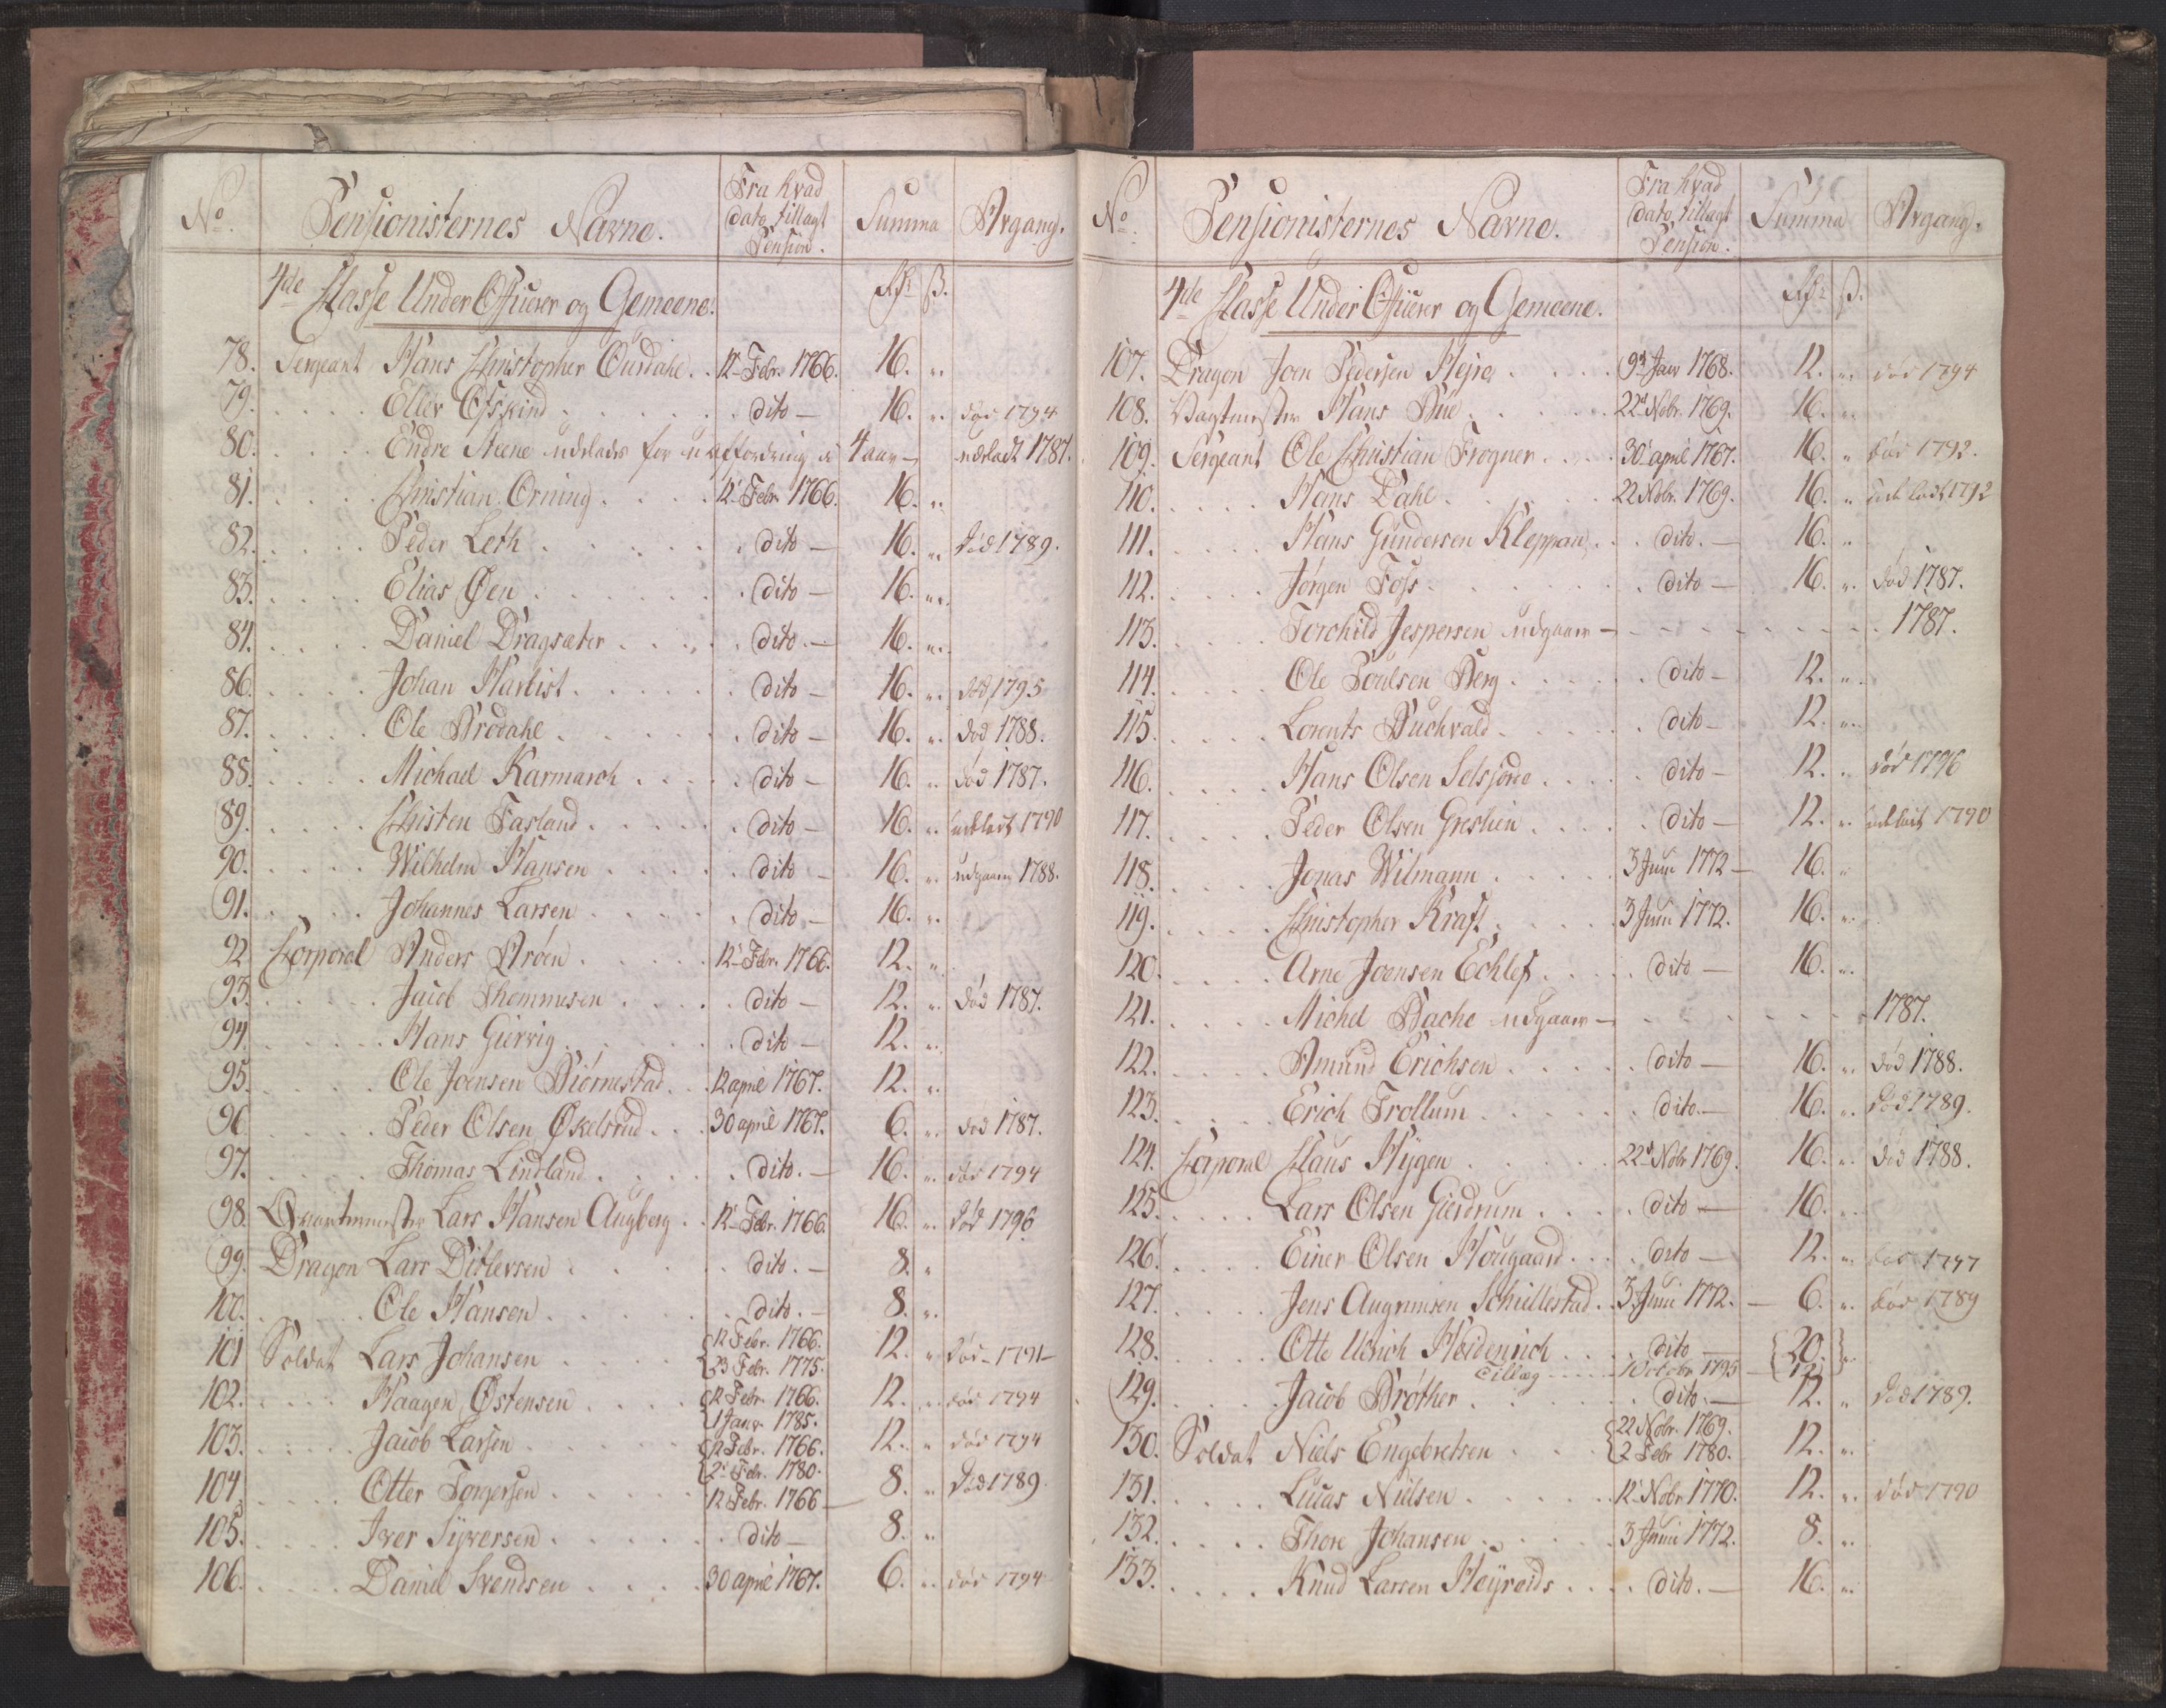 No. Pensionisternes Navne. Fra hvad dato tillagt Pension. Summa Afgang.
4de Classe Under Officerer og Gemeene. Rdr ß.
78. Sergeant Hans Christopher Ourdahl . . 12t Febr. 1766. 16. "
79. Eller Ofskind . . . dito — 16. " død 1794
80. Endre Steene udelades for uaffordring i 4 aar — uderladt 1787.
81. Christian Orning . . . 12t Febr. 1766. 16. "
82. Peder Leth . . . dito — 16. " Død 1789.
83. Elias Øen . . . dito — 16. "
84. Daniel Dragsæter . . . dito. — 16. "
86. Johan Harbist . . . dito — 16. " død 1795
87. Ole Brodahl . . . dito — 16. " død 1788.
88. Michael Karmarch . . . dito — 16. " død 1787.
89. Christen Farland . . . dito — 16. " udeladt 1790
90. Wilhelm Hansen . . . dito — 16. " udgaaen 1788.
91. Johannes Larsen . . . dito. — 16. "
92 Corporal Anders Aröen . . . 12t Febr. 1766. 12. "
93. Jacob Thommesen . . . dito — 12. " død 1787.
94. Hans Gierrig . . . dito — 12. "
95. Ole Joensen Biörnestad . . 12 april 1767. 12. "
96 Peder Olsen Økelsrud . . . 30 april 1767. 6. " død 1787.
97. Thomas Lindland . . . dito. — 16. " død 1794
98. Qvarteermester Lars Hansen Augberg . . 12t Febr. 1766. 16. " Død 1796
99. Dragon Lars Ditlevsen . . . dito. — 8. "
100. Ole Hansen . . . dito. — 8. "
101 Soldat Lars Johansen . . . {12 Febr. 1766. 23 Febr. 1775. 12. " død 1791
102. Haagen Østensen . . . {12 Febr. 1766. 1 Janv. 1785. 12. " død 1794
103. Jacob Larsen . . . {12 Febr. 1766. 2t Febr. 1780. 12. " død 1794
104. Otter Torgersen . . . 12 Febr. 1766 — 8. " Død 1789
105. Iver Syversen . . . dito — 8. "
106. Daniel Svendsen . . . 30 april 1767. 6. " død 1794
No. Pensionisternes Navne. Fra hvad dato tillagt Pension. Summa Afgang.
4de Classe Under Officerer og Gemeene. Rdr ß.
107. Dragon Joen Pedersen Hejre . . . 9d Janv 1768. 12. " død 1794
108. Vagtmester Hans Bue . . . 22d Nobr. 1769. 16. "
109. Sergeant Ole Christian Frogner . . . 30 april 1767. 16. " død 1792.
110. Hans Dahl . . . 22 Nobr. 1769. 16. " udeladt 1792
111. Hans Gundersen Kleppan . . . dito. — 16. "
112. Jörgen Foss . . . dito — 16. " død 1787.
113. Torchild Jespersen udgaaer — . . . 1787.
114. Ole Poulsen Berg . . . dito — 12. "
115. Lorents Buchvald . . . dito — 12. "
116. Hans Olsen Selsjord . . . dito — 12. " død 1796
117. Peder Olsen Greslien . . . dito — 12. " udeladt 1790
118. Jonas Wilmann . . . 3 Juni 1772 — 16. "
119. Christopher Kraft . . . 3 Juni 1772. 16. "
120. Arne Joensen Echleff . . . dito — 16. "
121. Michel Bache udgaaer — . . . 1787.
122. Amund Erichsen . . . dito — 16. " død 1788.
123. Erich Trollum . . . dito. — 16. " død 1789.
124. Corporal Claus Hygen . . . 22d Nobr 1769. 16. " død 1788.
125. Lars Olsen Gierdrum . . . dito — 16. "
126. Einer Olsen Hougaard . . . dito — 12. " død 1797
127. Jens Augrimsen Schiellestad . . 3 Juni 1772. — 6. " død 1789
128. Otte Ulrich Heidenrich . . . dito — {20.} "
Tillæg . . . 1 October 1795 — 12
129. Jacob Bröther . . . dito. — 12. " død 1789.
130. Soldat Niels Engebretsen . . . {22 Nobr. 1769. 2 Febr 1780. 12. "
131. Lucas Nielsen . . . 12t Nobr 1770. 12. " død 1790
132. Thore Johansen . . . 3 Juni 1772. 8. "
133. Knud Larsen Höyroids . . . dito. — 16. "